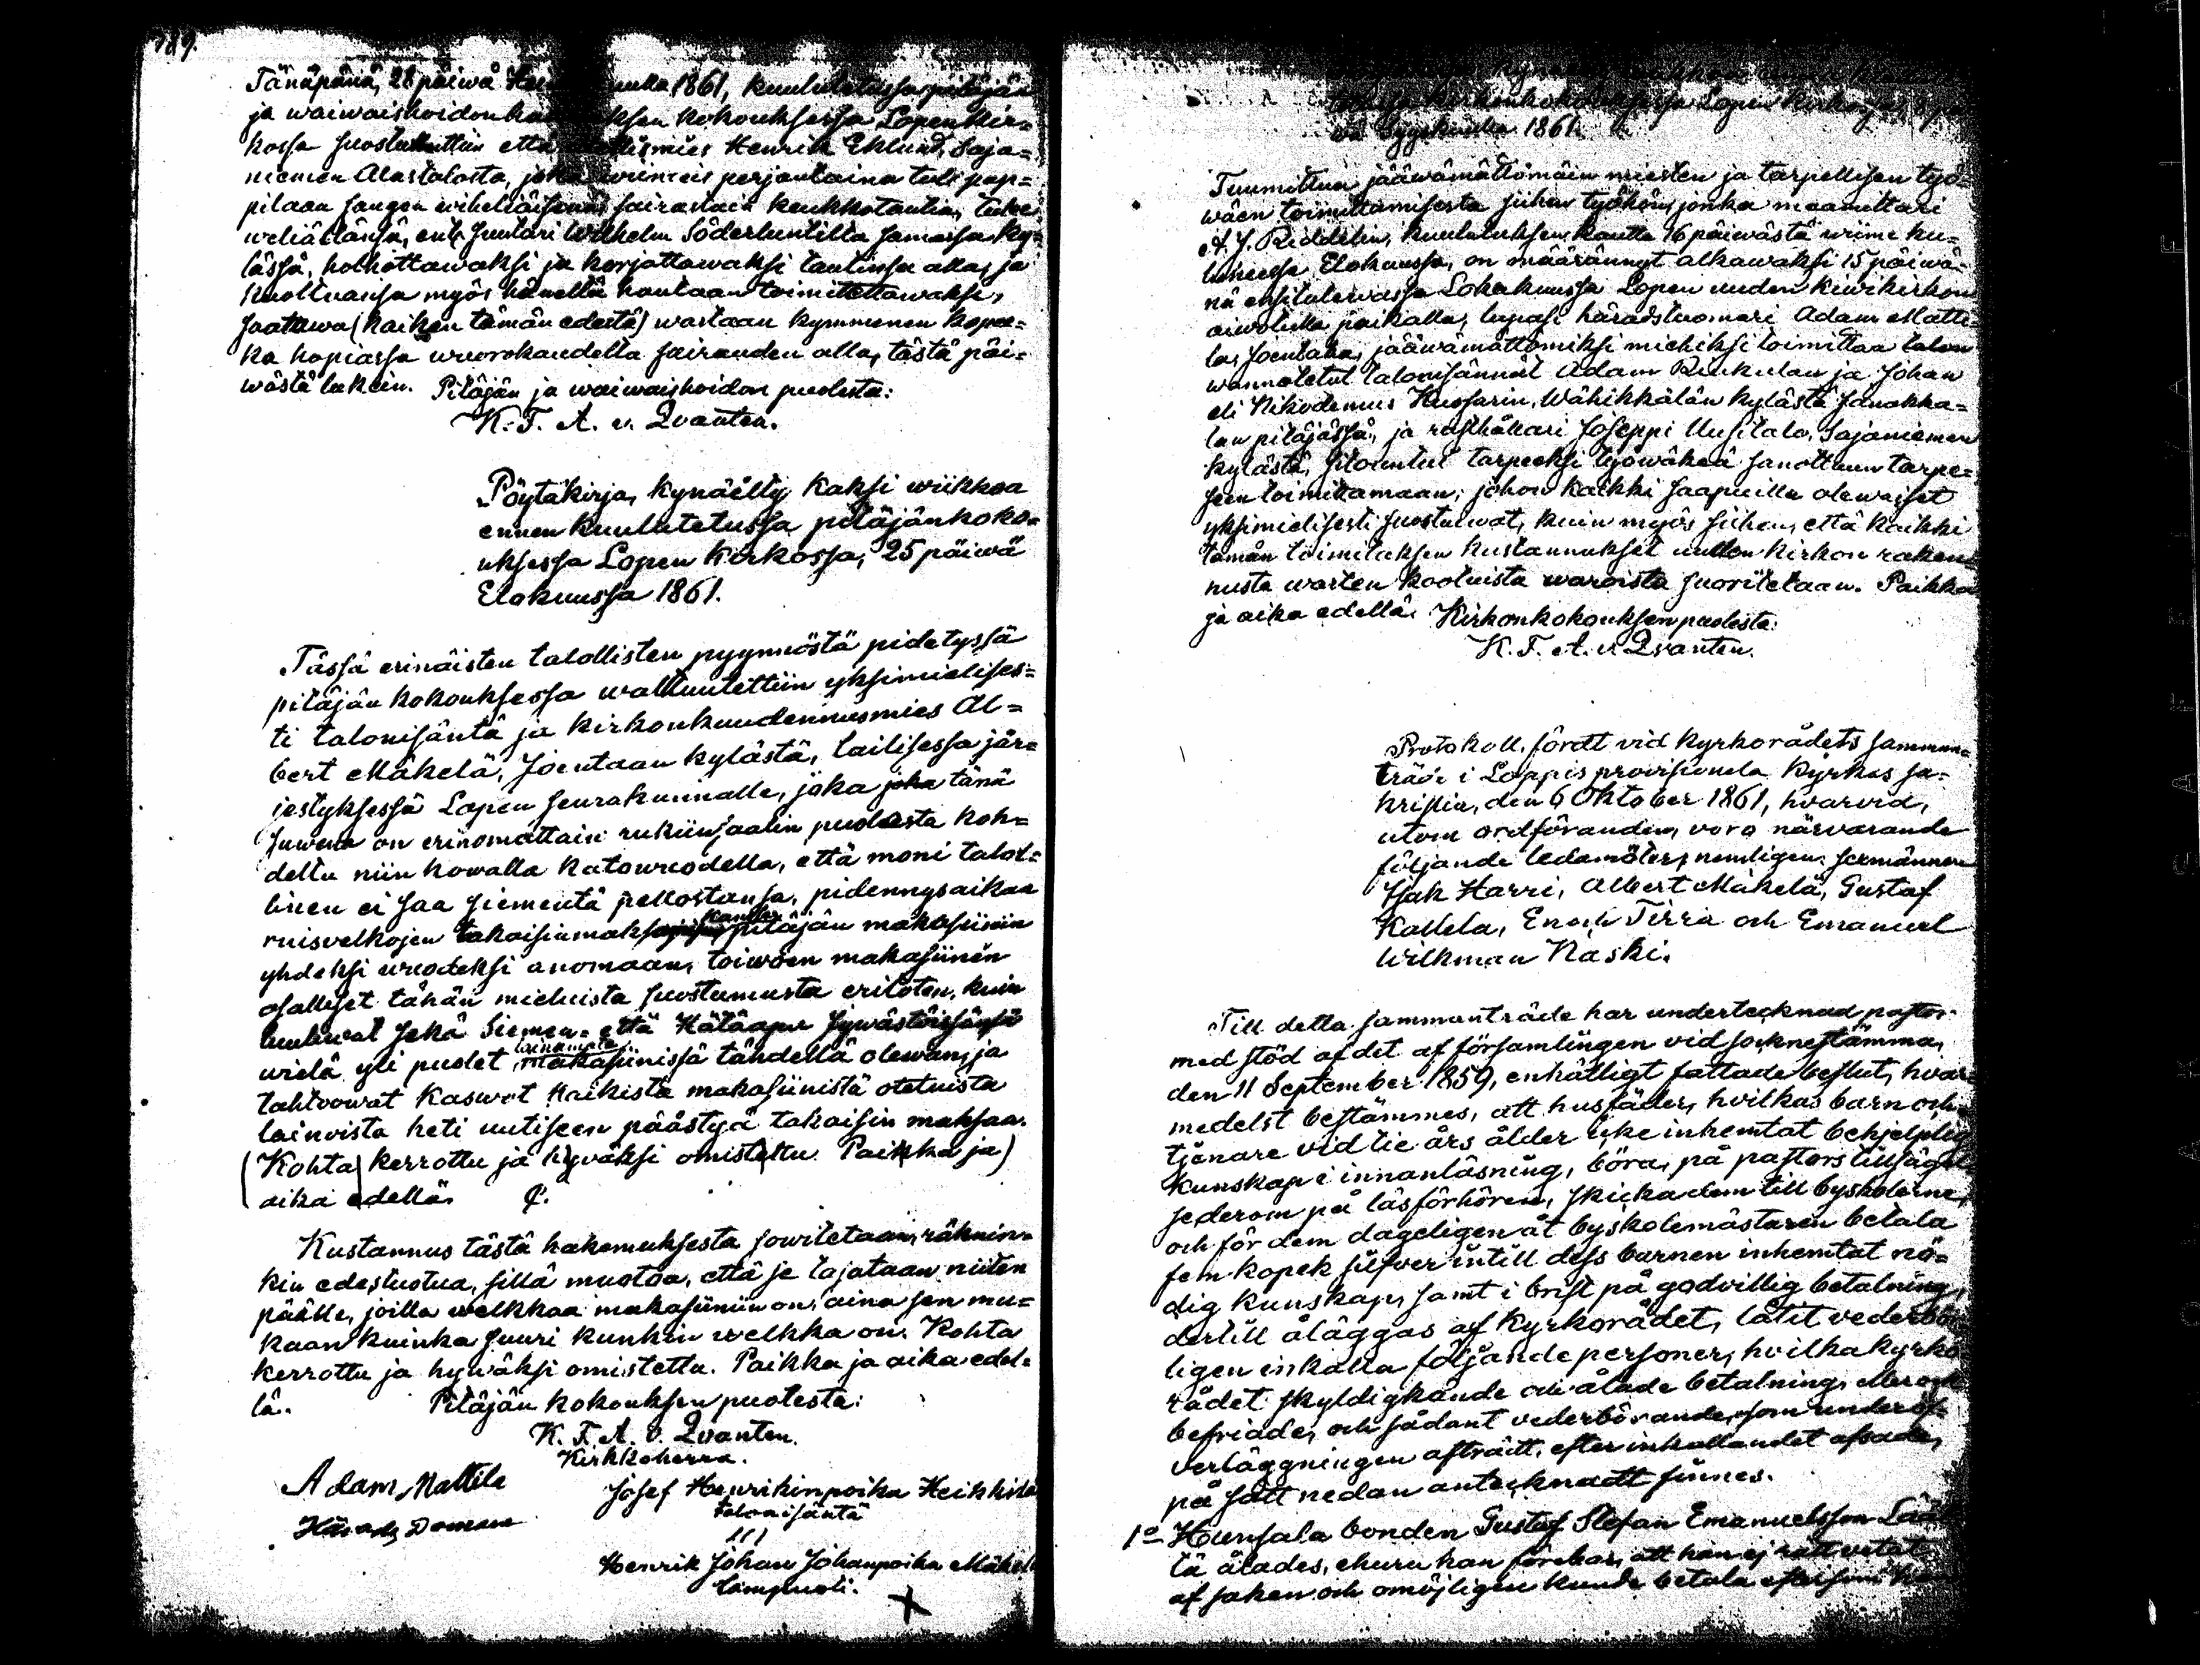 189.
Tänäpänä, 28 päiwä 1861, kuulutetussa pitäjän
ja waiwaishoidon kokouksessa Lopen kir=
kossa suostuttiin että Henrik Eklund, Saja=
niemen Alastalosta, joka wiimeis perjantaina tuli pap=
pilaan sangen wiheliäisenä sairastain keuhkotautia,
weljällänsä, enk. suutari Wilhelm Söderlundilla samassa ky=
lässä, holhottawaksi ja korjattawaksi tautinsa alla, ja
kuoltuansa myös häneltä hautaan toimitettawaksi,
saatuwa (kaiken tämän edestä) wastaan kymmenen kopee=
ka hopiassa wuorokaudelta sairauden alla, tästä päi=
wästä lukein. Pitäjän ja waiwaishoidon puolesta:
K. F. A. v. Qvanten.
Pöytäkirja, kynäilty kaksi wiikkoa
ennen kuulutetussa pitäjänkoko=
uksessa Lopen Kirkossa, 25 päiwä
Elokuussa 1861.
Tässä erinäisten talollisten pyynnöstä pidetyssä
pitäjän kokouksessa waltuutettiin yksimielises=
ti talonisäntä ja kirkonkuudennusmies Al=
bert Mäkelä, Joentaan kylästä, lailisessa jär=
jestyksessä Lopen seurakunnalle, joka joka tänä
suwena on erinomattain rukiinsaalin puolesta koh=
deltu niin kowalla katowuodella, että moni talol=
linen ei saa siementä pellostansa, pidennysaikaa
ruiswelkojen takaisinmaksa kanssa pitäjän makasiiniin
yhdeksi wuodeksi anomaan, toiwoen makasiinin
osalliset tähän mieluista suostumusta eritoten, kuin
luulewat sekä Siemen- että Hätäapu Jywästöissänsä
wielä yli puolet lainamata makasiinissa tähdellä olewan, ja
tahtoowat kaswot kaikista makasiinistä otetuista
lainoista heti uutiseen päästyä takaisin maksaa.
(Kohta kerrottu ja hywäksi omistettu. Paikka ja)
aika edellä.
Kustannus tästä hakemuksesta sowitetaan, räknin=
kin edestuotua, sillä muotoa, että se tajataan niiten
päälle, joilla welkkaa makasiiniin on, aina sen mu=
kaan kuinka suuri kunkin welkka on. Kohta
kerrottu ja hywäksi omistettu. Paikka ja aika edel=
lä. Pitäjän kokouksen puolesta:
K. F. A. v. Qvanten.
Kirkkoherra.
Adam Mattila
Härads Domare
Josef Henrikinpoika Heikkilä
talonisäntä
Henrik Johan Johanpoika Mäkelä
lampuoti.
kirkonkokouksessa Lopen Kirkossa,
Syyskuussa 1861.
Tuumittua jääwämättömäin miesten ja tarpellisen työ=
wäen toimittamisesta siihen työhön, jonka maamittari
A. J. Riddelin, kuulutuksen kautta 16 päiwästä wiime ku=
luneessa Elokuussa, on määrännyt alkawaksi 15 päiwä=
nä ensitulewassa Lokakuussa Lopen uuden kiwikirkon
aiwotulla paikalla, lupasi häradstuomari Adam Matti=
la, Joentaka, jääwämättömiksi miehiksi toimittaa talon
wannotetut talonisännät Adam Rinkulan ja Johan
eli Nikodemus Hussarin, Wähikkälän kylästä Janakka=
lan pitäjässä, ja rusthållari Joseppi Uusitalo, Sajaniemen
kylästä, sitountui tarpeeksi työwäkeä sanottuun tarpe=
seen toimittamaan; johon kaikki saapuilla olewaiset
yksimielisesti suostuiwat, kuin myös siihen, että kaikki
tämän toimituksen kustannukset uuden kirkon raken=
nusta warten kootuista waroista suoritetaan. Paikka
ja aika edellä. Kirkonkokouksen puolesta:
K. F. A. v. Qvanten.
Protokoll, fördt vid kyrkorådets samman=
träde i Loppis provisionela kyrkas sa=
kristia, den 6 Oktober 1861, hvarvid,
utom ordföranden, voro närvarande
följande ledamöter, nemligen: sexmännen
Isak Harri, Albert Mäkelä, Gustaf
Kallela, Enoch Tirra och Emanuel
Wilkman Naski.
Till detta sammanträde har undertecknad pastor
med stöd af det af församlingen vid socknestämma,
den 11 September 1859, enhälligt fattade beslut, hvar=
medelst bestämmes, att husfäder, hvilkas barn och
tjänare vid tie års ålder icke inhemtat behjelplig
kunskap i innanläsning, böra, på pastors tillsägelse
sederom på läsförhören, skicka dem till byskolerne,
och för dem dageligen åt byskolemästaren betala
fem kopek silfver intill dess barnen inhemtat nö=
dig kunskap, samt i brist på godvillig betalning,
dertill åläggas af kyrkorådet, låtit vederbör
ligen inkalla följande personer, hvilka kyrko
rådet skyldigkände och ålade betalning, eller ock
befriade, och sådant vederbörande, som under öf=
verläggningen afträdt, efter inkallandet afsade,
på sätt nedan antecknadt finnes.
1o Hunsala bonden Gustaf Stefan Emanuelsson
ålades, ehuru han förebar, att han ej rätt vetat
af saken och omöjligen kunde betala eftersom